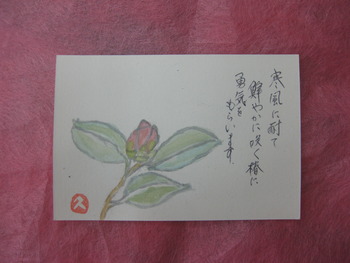 寒風に耐て
鮮やかに咲く椿に
勇気を
もらいます
久